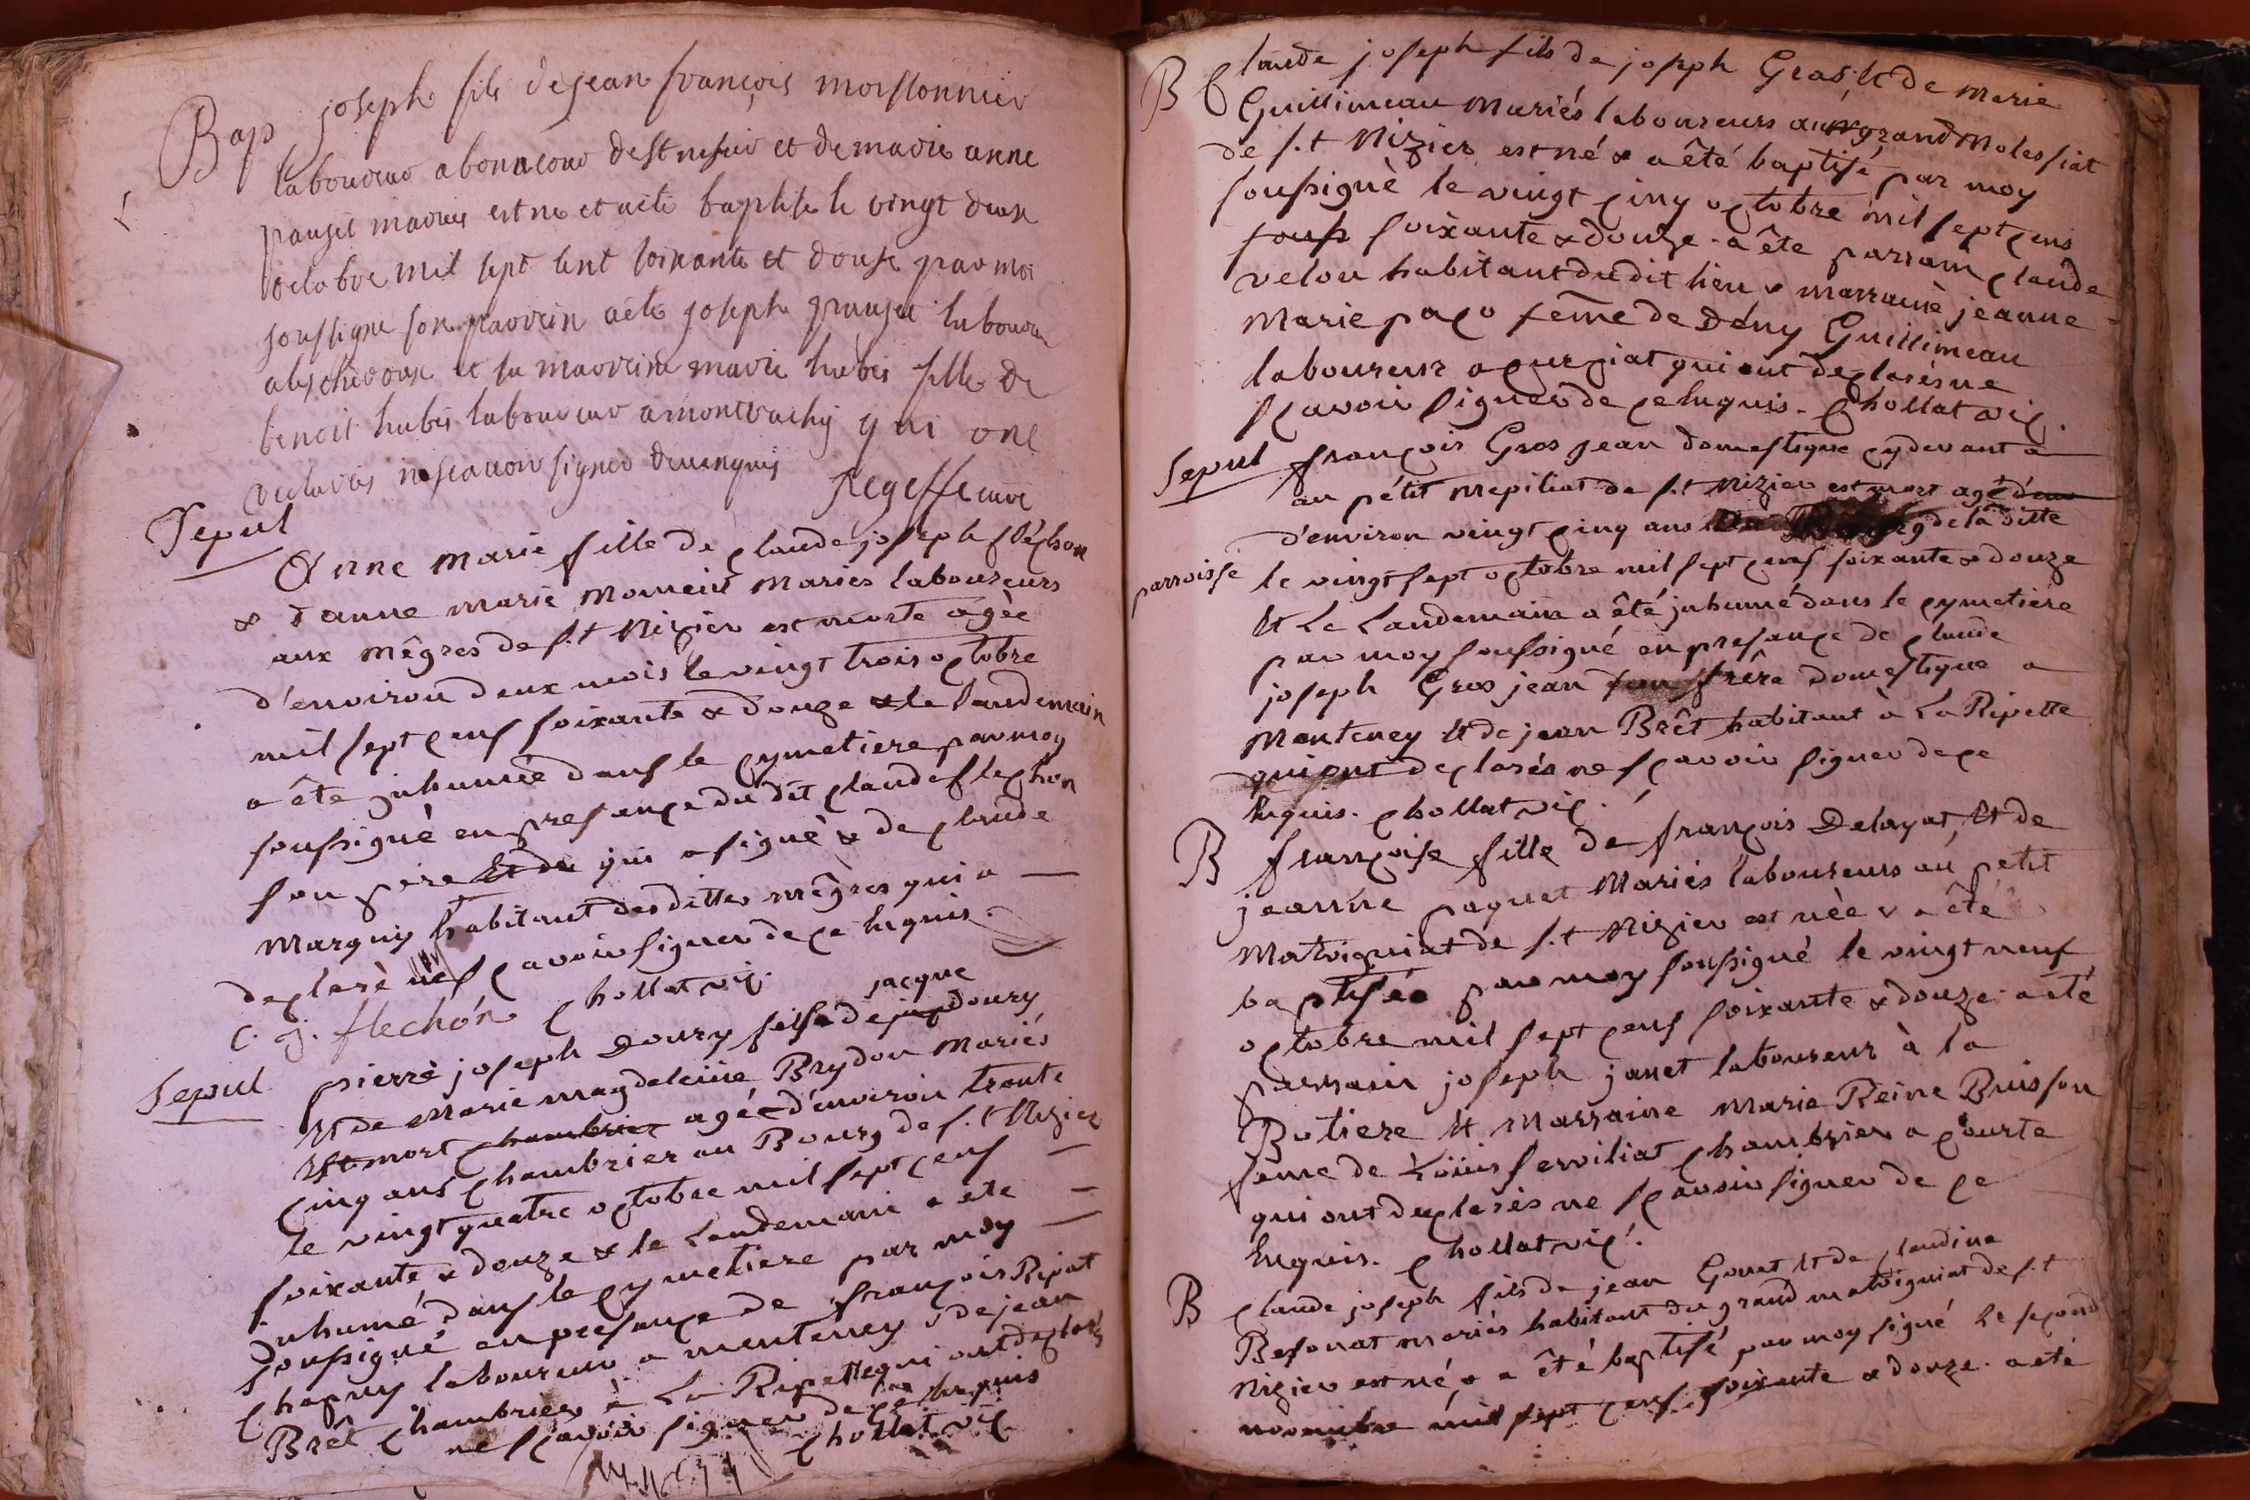 Bap joseph fils de jean françois moissonnier
laboureur a bonnacour de st nisier et de marie anne
pauget maries est ne et a ete baptise le vingt deux
octobre mil sept cent soixante et douse par moi
soussigne son parrein a ete joseph
et sa marreine marie hubes fille de
benoit hubes laboureur a montrachy qui ont
declares ne scauoir signer de
Sepul
Anne marie fille de claude joseph flechon
& d'anne marie Moment Mariés laboureurs
aux mêgres de s.t Nizier est morte agée
d'environ deux mois le vingt trois octobre
mil sept cens soixante & douze & le Landemain
a été inhumée dans le cymetiere par moy
soussigné en presance du dit claude flechon
son pere Et de qui a signé & de claude
Marguy habitant des dittes mêgres qui a
declaré ne scavoir signer de ce enquis.
C. j. flechón chollat vic.
jacque
Sepul pierre joseph Doury fils de doury
Et de Marie magdeleine Brydon Mariés
Est mort chambrier agé d'environ trente
cinq ans chambrier au Bourg de s.t Nizier
le vingt quatre octobre mil sept cens
soixante & douze & le Landemain a ete
Inhumé dans le cymetiere par moy
soussigné en presance de françois Ripat
chapuy laboureur a montenay & de jean
Brêt chambrier à La Ripette qui ont declarés
ne scavoir signer de ce enquis
chollat vic
B Claude joseph fils de joseph Gras, & de Marie
Guillimeau Mariés laboureurs au grand Molessiat
de s.t Nizier est né & a été baptisé par moy
soussigné le vingt cinq octobre mil sept cens
souss soixante & douze. a éte parrain claude
velou habitant du dit lieu & marraine jeanne
Marie paco feme de Dény Guillimeau
laboureur a curciat qui ont declarés ne
scavoir signer de ce enquis. Chollat vic.
Sepul françois Gros jean domestique cy devant a
au pétit Mepiliat de s.t Nizier est mort agé d'env
d'environ vingt cinq ans de la ditte
parroisse le vingt sept octobre mil sept cens soixante & douze
Et Le Landemain a été inhumé dans le cymetiére
par moy soussigné en presance de claude
joseph Gros jean son frére domestique a
Monteney Et de jean Brêt habitant à La Ripette
qui ont declarés ne scavoir signer de ce
enquis. chollat vic.
B françoise fille de françois Delayat, Et de
jeanne paquet Mariés laboureurs au petit
Matvigniat de s.t Nizier est née & a été
baptisée par moy soussigné le vingt neuf
octobre mil sept cens soixante & douze a eté
parrain joseph janet laboureur à la
Botiere Et Marraine Marie Reine Buisson
feme de Loüis Serviliat chambrier a courte
qui ont declarés ne scavoir signer de ce
Enquis. chollat vic.
B claude joseph fils de jean Gonet Et de claudine
Besonat mariés habitant du grand matvigniat de s.t
Nizier est né, & a été baptisé par moy signé Le second
novembre mil sept cens soixante & douze. a eté